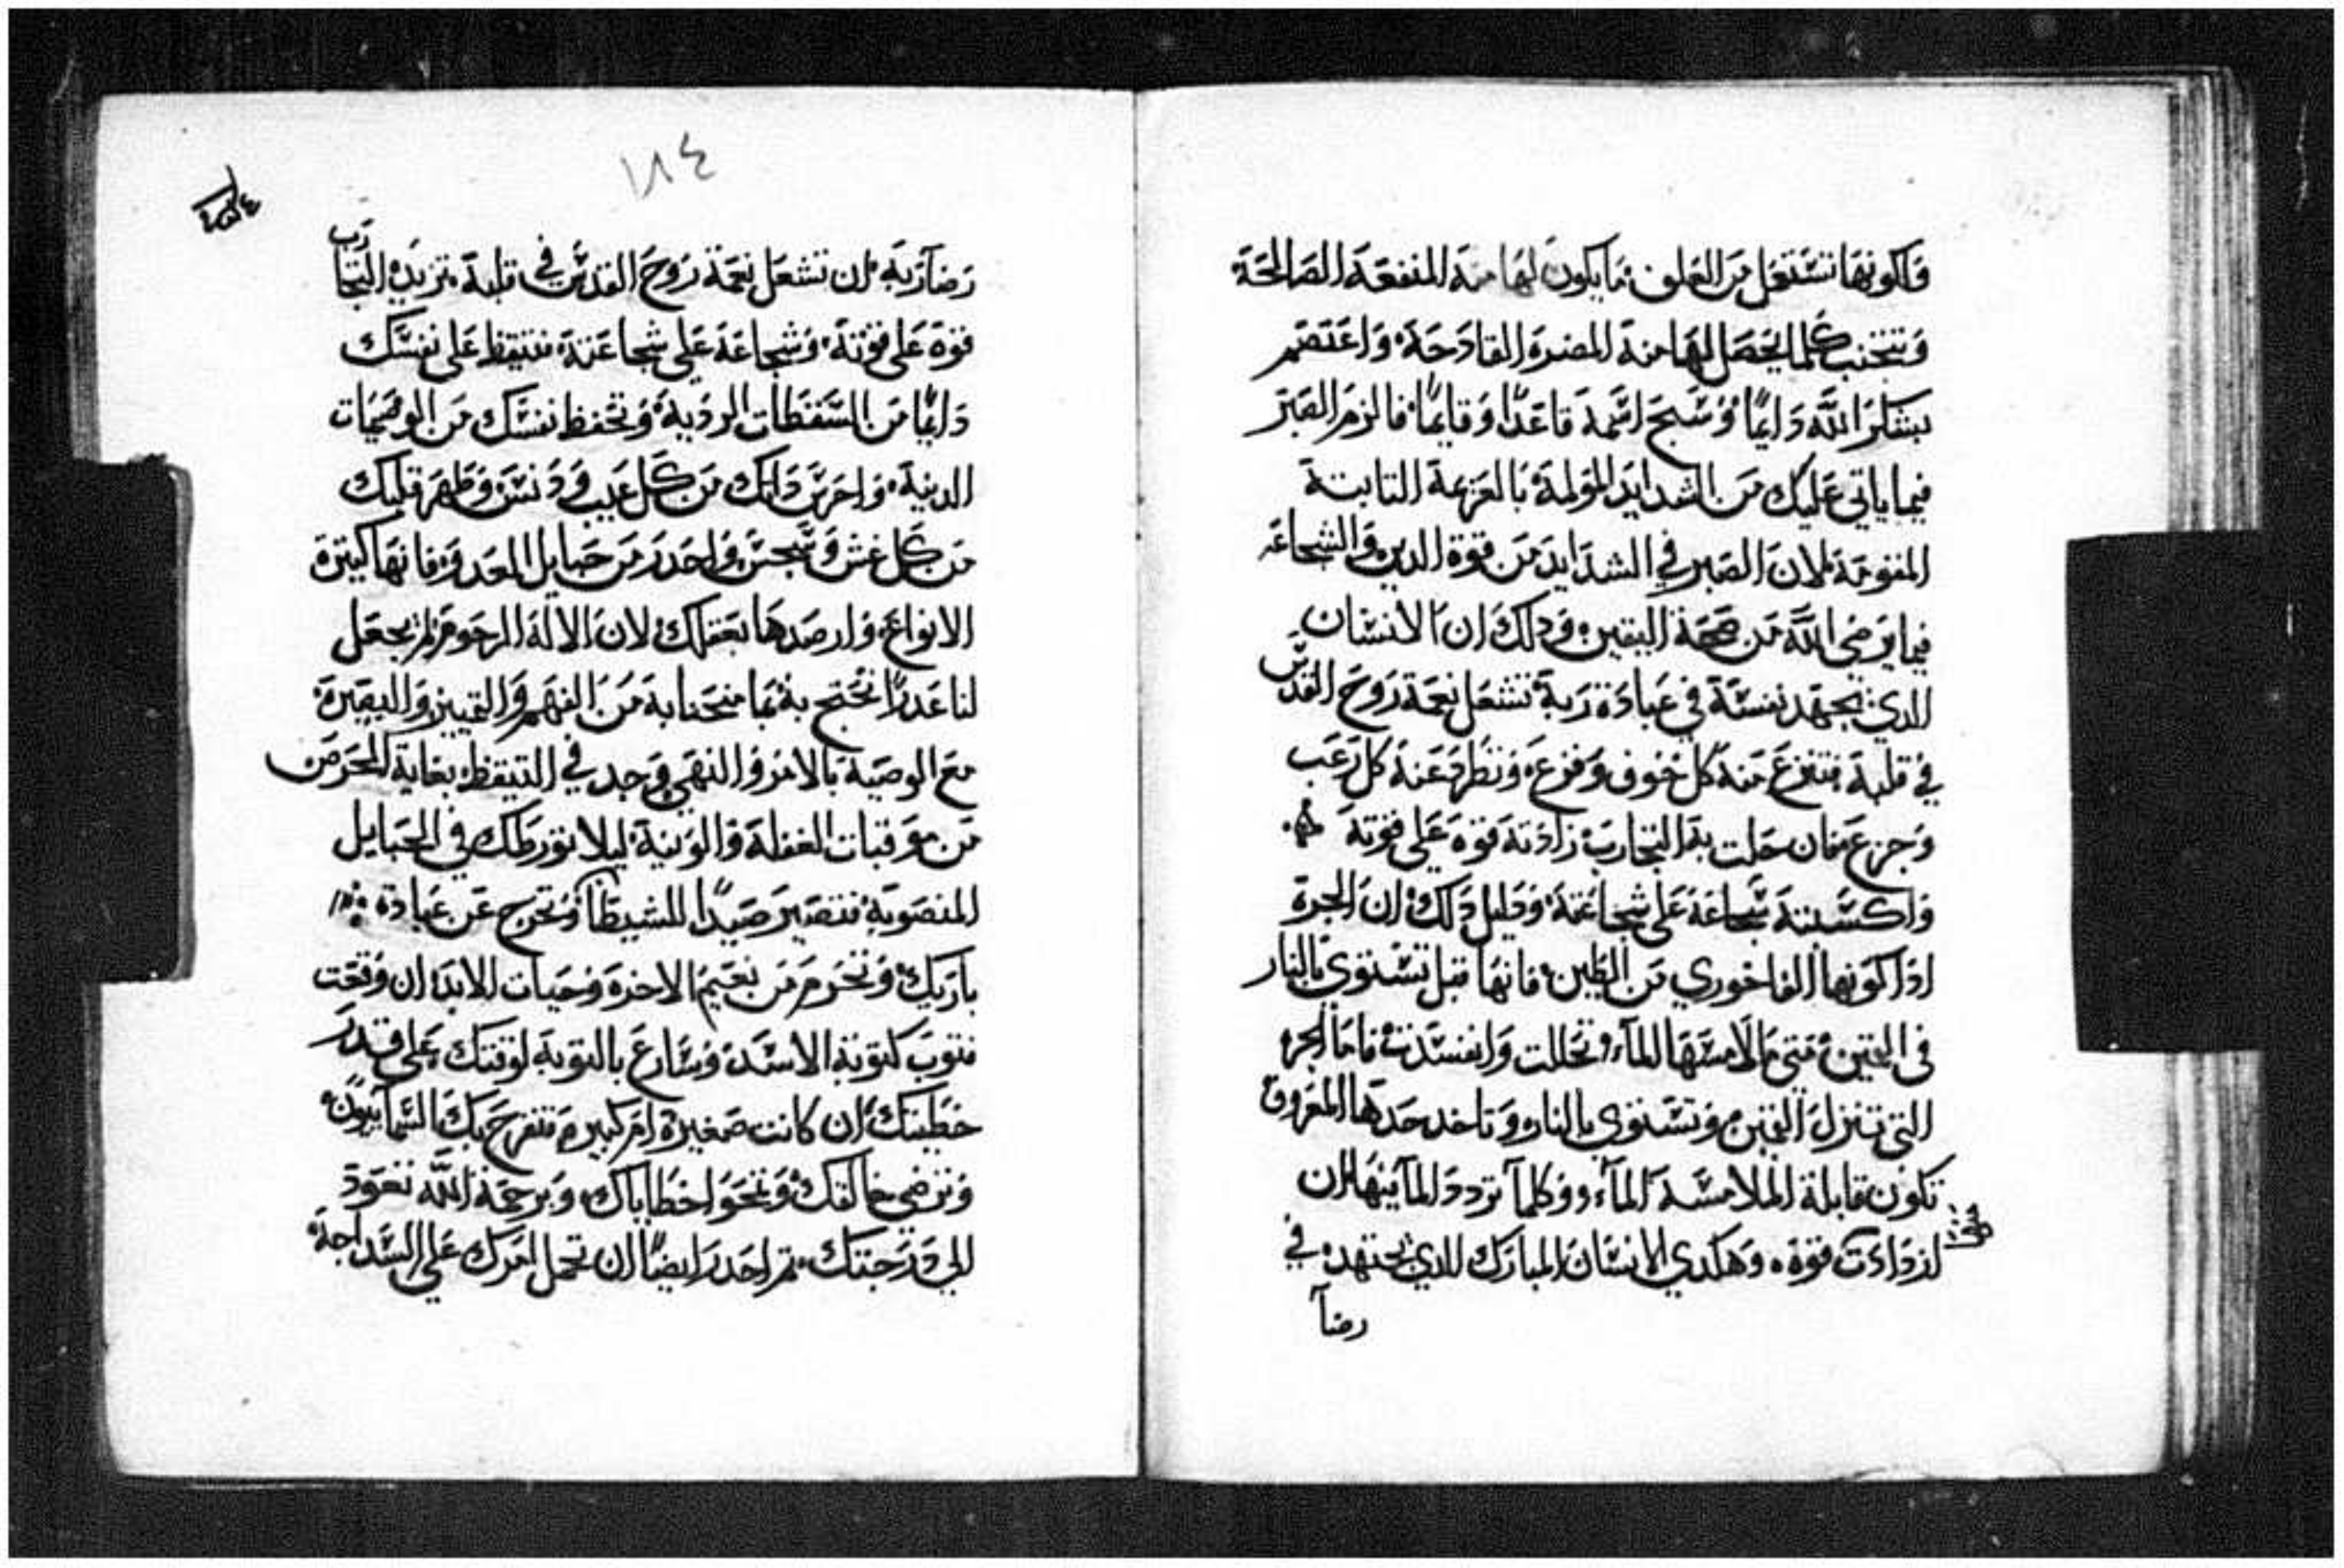 وَاكونهَا تشتغل من العلوف مَا يكون لهَا منهَ المنفعَة الصَالحَة
وَتتجَنب كلما يحصَل لهَا منهَ المضرة القادَحَة وَاعتَصَم
بشكر اللَّه دَايمًا وَسَبح اسمهَ قاعدًا وَقايمًا فالزم الصَبَر
فيما ياتي عَليك مَن الشدايد المولمة بَالعَزيمة التابتة
المقومَة لان الصَبر في الشدَايد مَن قوة الدين وَالشجاعَة
فيما يرَضي اللَّه مَن صحَة اليقين وَدلك ان الانسَان
الدي يجهَد نفسَهَ في عبَادَة رَبهَ تشتعَل نعمَة رَوحَ القدسَ
في قلبهَ فتفزعَ منهَ كل خوف وَفزعَ وَتطَرد عَنهَ كل رَعَب
وَجزع فان حَلت بهَ التجارَب زادَتهَ قوة عَلي قوتهَ
وَاكسَبتهَ شجاعَة عَلي شجاعتهَ وَدليل دَلك ان الجرة
ادَا كوَنهَا الفاخوري مَن الطَين فانهَا قبل تسَتوي بالنار
في القمين مَتي مَا لامسَهَا المآء تحَللت وَانفسَدت فامَا الجرة
التي تنزل القمين وَتسَتوي بالنار وَتاخد حَدهَا المعَروف
تكون قابلة الملامسَة المآء وَكلمآ تردد المآ فيهَا ان
ازدَادَت قوة وَهكدي الانسَان المبارَك الدي يجتهد في
رضآ
١٨٤
رَضآ رَبهَ ان تشعَل نعمَة رَوحَ القدسَ في قلبهَ تزيدهَ التجارَب
قوة عَلي قوتهَ وَشجاعَة عَلي شجاعَتهَ فتيقظ عَلي نفسَك
دَايمًا مَن السَقطَات الردَية وَتحفظ نفسَك مَن الوصَمَات
الدنية وَاحرَسَ دَاتك مَن كل عَيب وَدَنسَ وَطَهرَ قلبك
مَن كل غش وَنجسَ وَاحدَر مَن حَبايل العَدو فانهَا كتيرة
الانواعَ وَارصَدهَا بعَقلك لان الالهَ الرحَوم لم يجعَل
لنا عَدرًا نحتج بهَ بمَا منحَنا بهَ مَن الفهم وَالتمييز وَالبصَيرة
معَ الوصَية بالامر وَالنهَي وَجد في التيقظ بغاية الحَرص
مَن موَقبات الغفلة وَالوَنية ليلا تورَطك في الحبايل
المنصَوبة فتصَير صَيدًا للشيطَان وَتحَرج عَن عبَادة
بارَيك وَتحرم مَن نعَيم الاخرة وَحَيات الابد ان وَقعَت
فتوبَ كتوبة الاسَد وَسَارع بالتوبة لوقتك عَلي قدرَ
خطَيتك ان كانت صَغيرة ام كبيرة فتفرح بك السَمآييون
وَترَضي خالقك وَتمَحَوا خطَاياك وَبرحمَة اللَّه تعَود
الي دَرَجتك تم احدر ايضًا ان تحمل امرك عَلي السَداجة